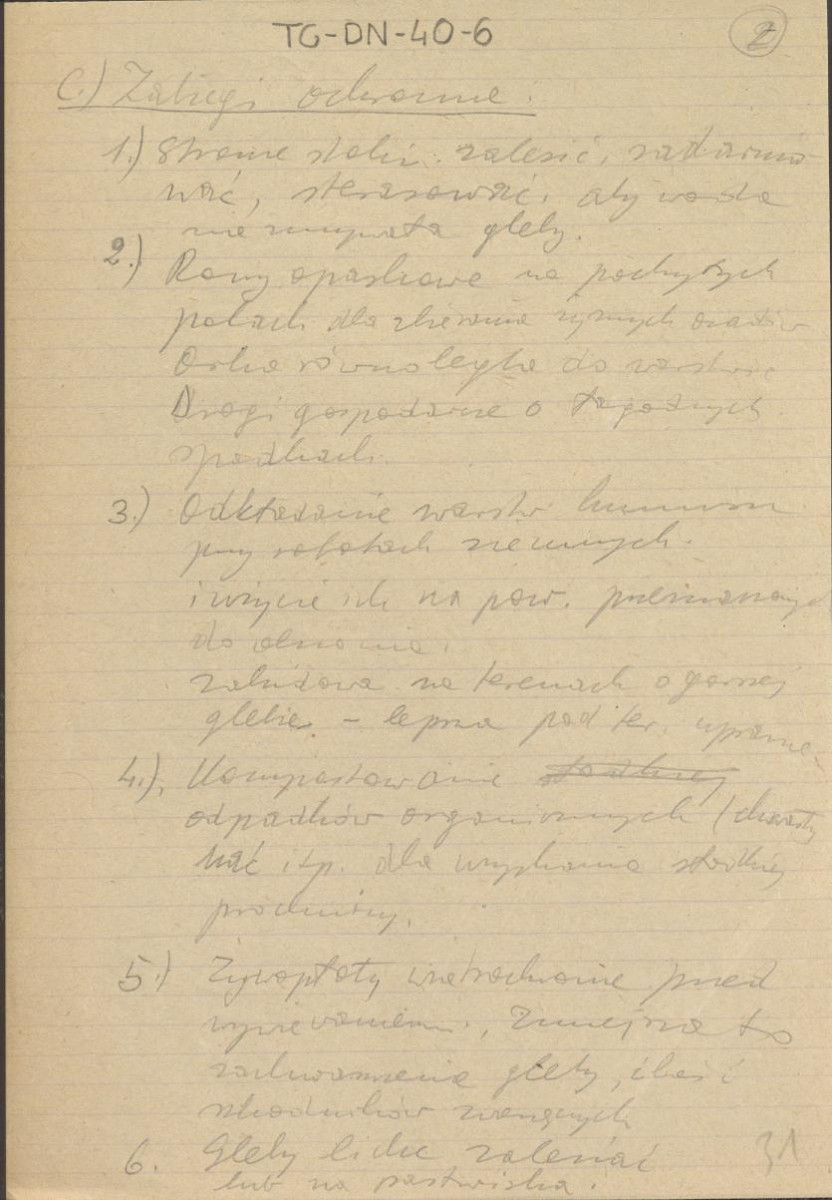 TG-DN-40-6
2
C.) Zabiegi ochronne.
1.) Strome stoki: zalesić, zadarnio-
wać, sterasować, aby woda
nie zmywała gleby.
2.) Rowy opaskowe na pochyłych
polach dla zbierania żyznych osadów
Orka równoległa do warstwic
Drogi gospodarcze o łagodnych
spadkach.
3.) Odkładanie warstw humusu
przy robotach ziemnych.
i użycie ich na pow. przeznaczonych
do obsiania.
zabudowa na terenach o gorszej
glebie – lepsza pod ter. uprawne.
4.) Kompostowanie
odpadków organicznych (chwasty
nać itp. dla uzyskania słodkiej
próchnicy.
5.) Żywopłoty wiatrochronne przed
wywiewaniem. Zmniejsza to
zachwaszczenie gleby, ilość
szkodników zwierzęcych
6. Gleby liche zalesiać
lub na pastwiska.
31